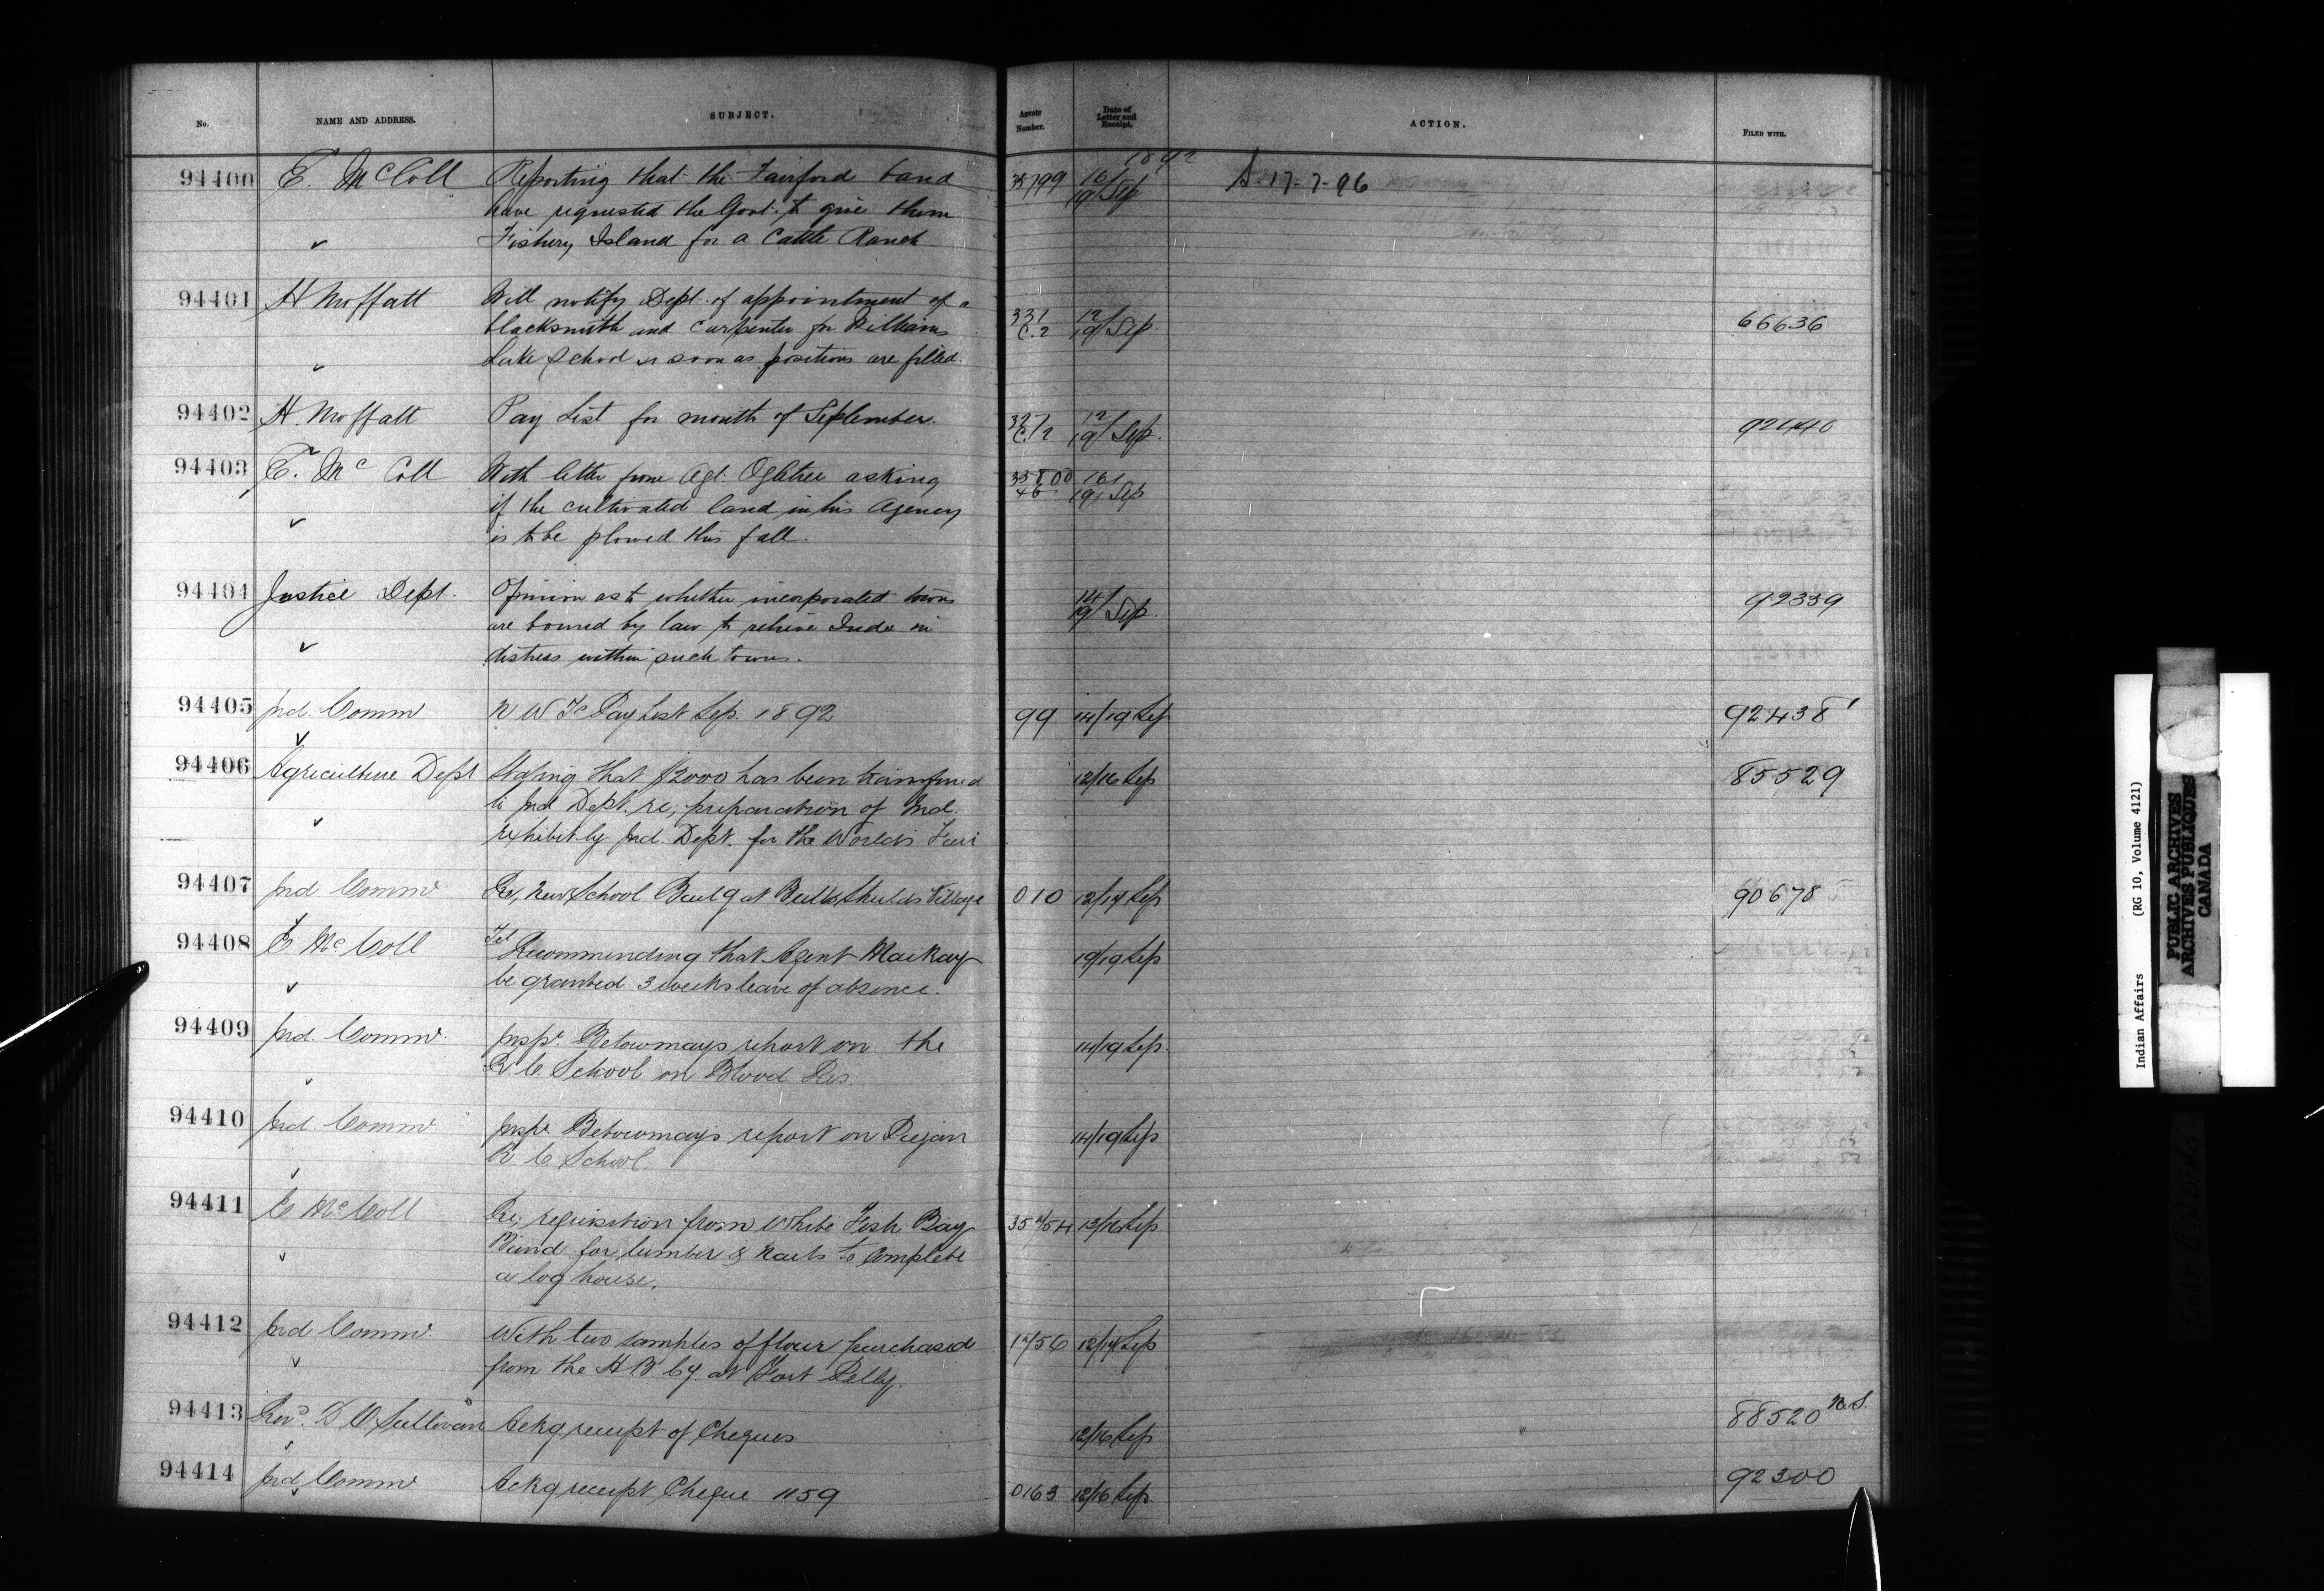 No. NAME AND ADDRESS. SUBJECT. Agents Number. Date of Letter and Receipt. ACTION. FILED WITH.
1892
94400 E. McColl Reporting that the Fairford band 35799 16/19 Sep A. 17-7-96
have requested the Govt. to give them
✓ Fishery Island for a Cattle Ranch
94401 H Moffatt Will notify Dept. of appointment of a
blacksmith and Carpenter for Williams 331 C.2 12/19 Sep 66636
✓ Lake School as soon as positions are filled.
94402 H. Moffatt Pay List for month of September. 12/19 Sep. 92440
94403 E. Mc Coll With letter from Agt. Ogletree asking 35800 46 16/19 Sep
✓ if the cultivated land in his Agency
is to be plowed this fall.
94404 Justice Dept. Opinion as to whether incorporated towns 14/19 Sep. 92339
are bound by law to relieve Inds in
✓ distress within such towns.
94405 Ind. Commr N W Ty Pay List Sep. 1892 99 14/19 Sep 92438
✓
94406 Agriculture Dept Stating that $2000 has been transferred 12/16 Sep 85529
to Ind Dept. re, preparation of Ind.
✓ exhibit by Ind. Dept. for the World's Fair
94407 Ind Commr Re, New School Buildg at Bulls Shields Village 010 12/14 Sep 90678
✓
94408 E McColl Tel Recommending that Agent MacKay 19/19 Sep
✓ be granted 3 weeks leave of absence.
94409 Ind. Commr. Inspr. Betournay's report on the 14/19 Sep.
✓ R. C. School on Blood Res.
94410 Ind Commr Inspr. Betournay's report on Piegan 14/19 Sep
✓ R. C. School.
94411 E McColl Re; requisition from White Fish Bay 13/16 Sep.
✓ Band for lumber & nails to Complete
a log house.
94412 Ind Commr. With two samples of flour purchased 12/14 Sep
✓ from the H B Cy. at Fort Pelly.
94413 Revd. D O'Sullivan Ackg receipt of Cheques 12/16 Sep 88520 N.S.
✓
94414 Ind Commr Ackg receipt Cheque 1159 0163 12/16 Sep. 92300
✓
Indian Affairs (RG 10, Volume 4121)
PUBLIC ARCHIVES
ARCHIVES PUBLIQUES
CANADA